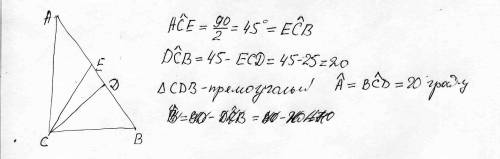 A
E
D
C
B
AĈE = 90/2 = 45° = EĈB
DĈB = 45 - ECD = 45-25=20
△CDB - прямоугольн! Â = BĈD = 20 град-у